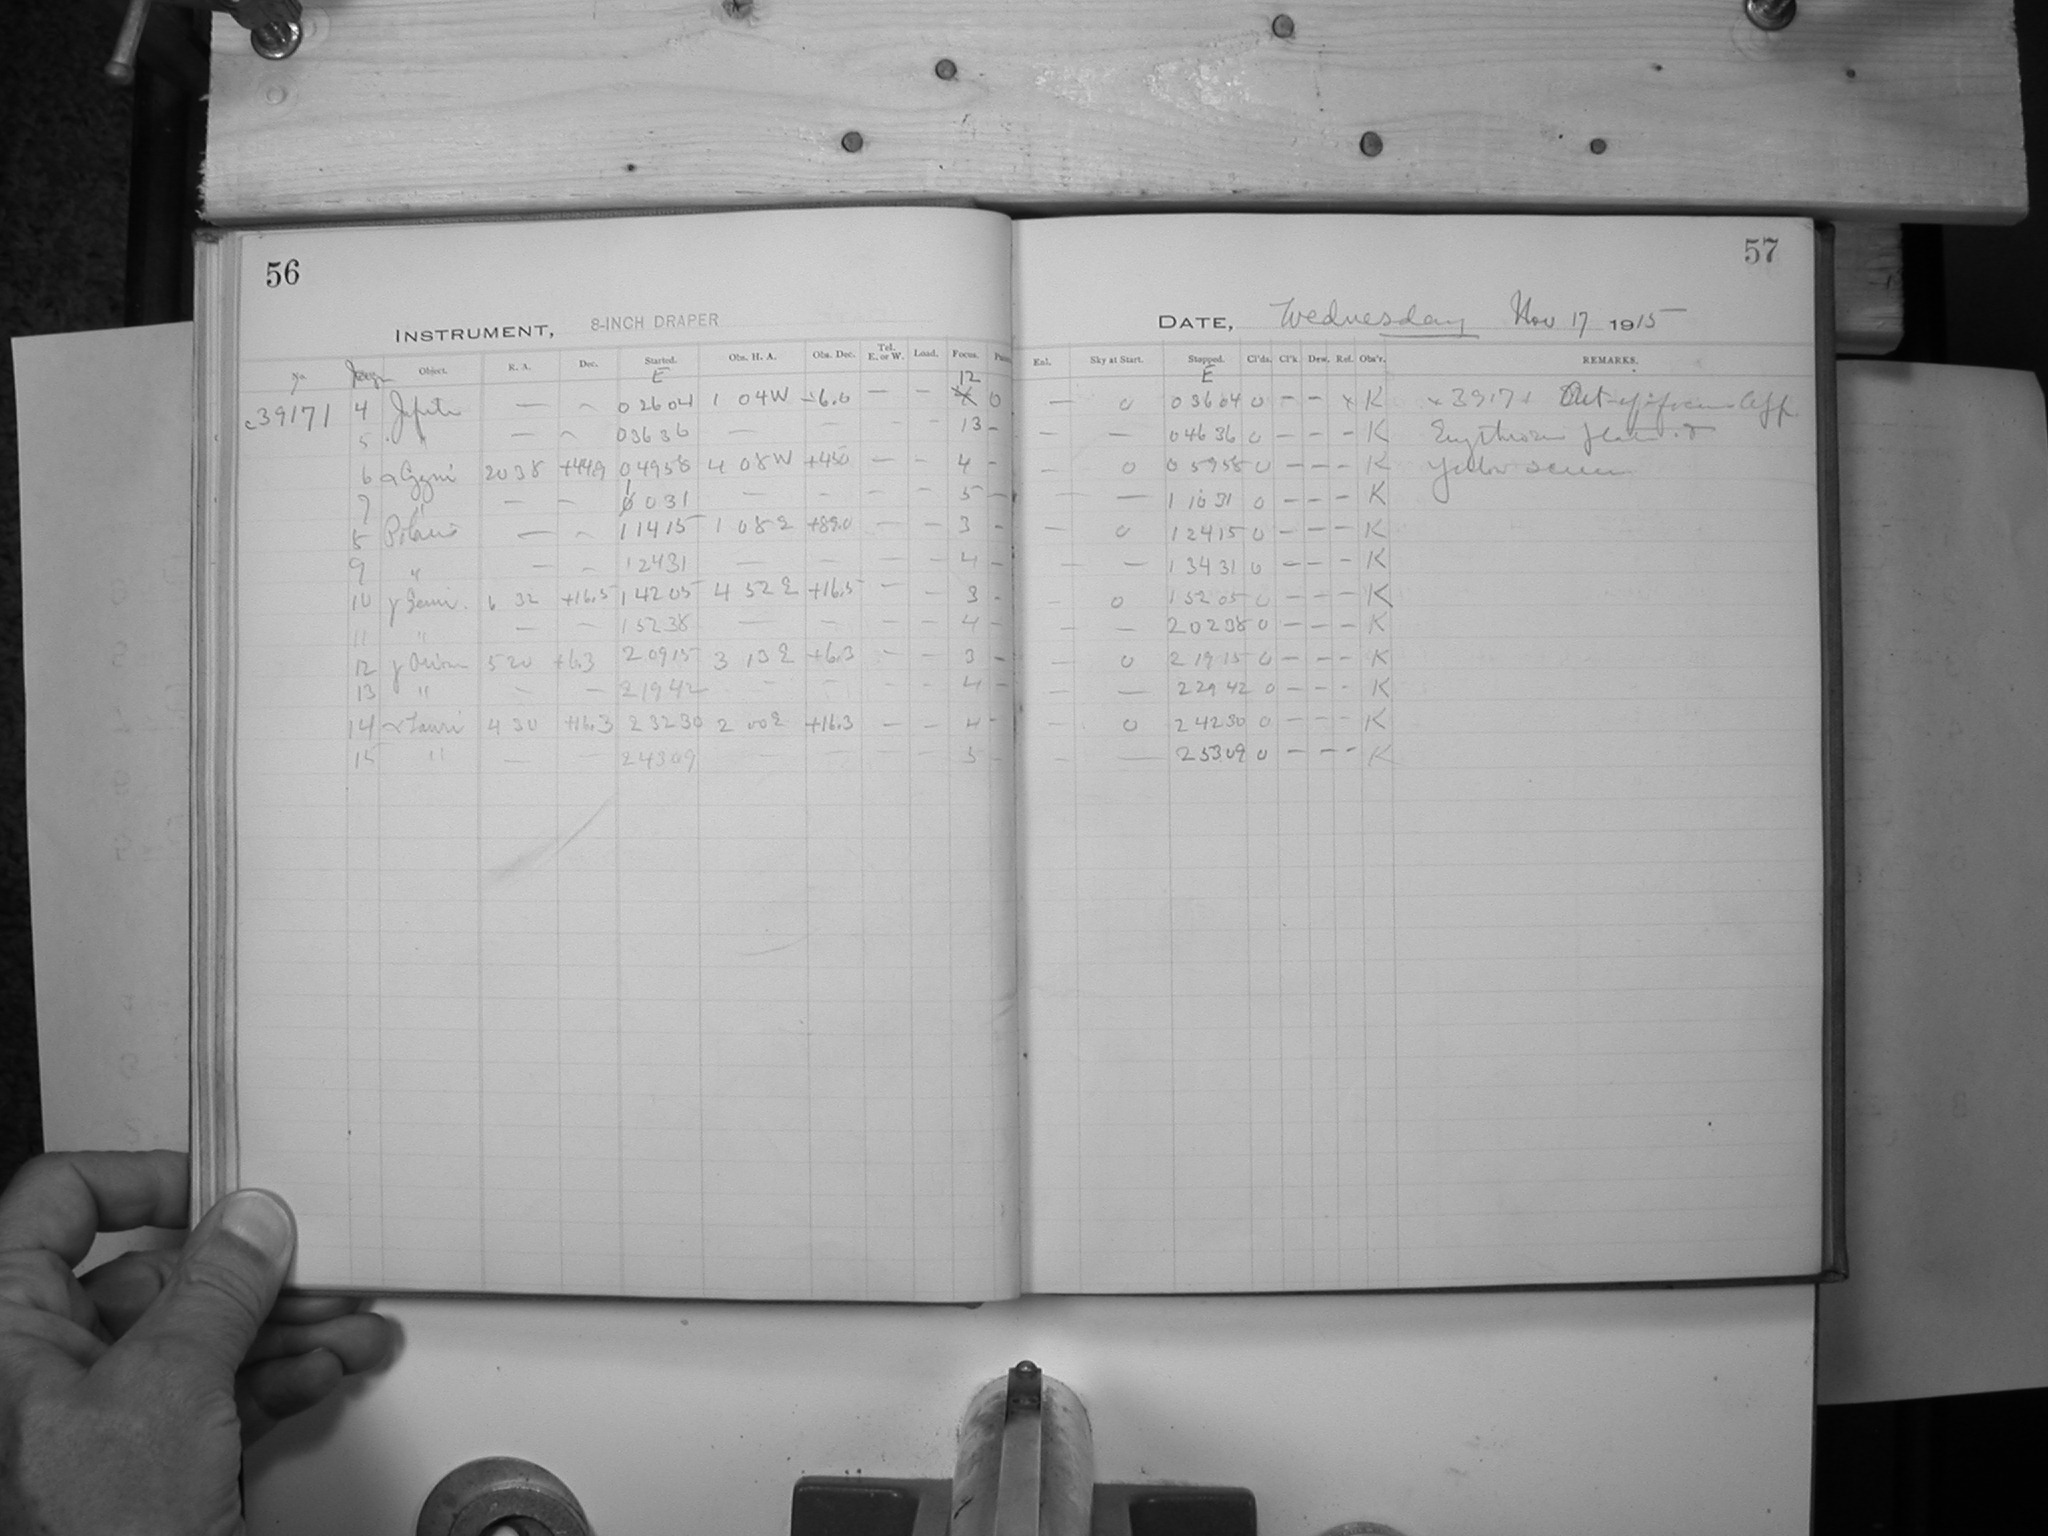 56
57
INSTRUMENT, 8-INCH DRAPER
DATE, Wednesday Nov 17 1915
No. Object. R. A. Dec. Started. Obs. H. A. Obs. Dec. Tel. E. or W. Load. Focus.
Enl. Sky at Start. Stopped. Cl'ds. Cl'k. Dew. Rel. Obs'r. REMARKS.
E 12
E
c39171 4 Jupiter — — 0 26 04 1 04W -6.0 — — X 0
— 0 0 36 04 0 — — x K x 39171 Out of focus
5 " — — 0 36 36 — — — — 13 —
— — 0 46 36 0 — — — K Erythrosin
6 α Cygni 20 38 +44.9 0 49 58 4 08W +45.0 — — 4 —
— 0 0 59 58 0 — — — K Yellow screen
7 " — — 1 00 31 — — — — 5 —
— — 1 10 31 0 — — — K
8 Polaris — — 1 14 15 1 08 E +89.0 — — 3 —
— 0 1 24 15 0 — — — K
9 " — — 1 24 31 — — — — 4 —
— — 1 34 31 0 — — — K
10 γ Gemi. 6 32 +16.5 1 42 05 4 52 E +16.5 — — 3 —
— 0 1 52 05 0 — — — K
11 " — — 1 52 38 — — — — 4 —
— — 2 02 38 0 — — — K
12 γ Orion 5 20 +6.3 2 09 15 3 13 E +6.3 — — 3 —
— 0 2 19 15 0 — — — K
13 " — — 2 19 42 — — — — 4 —
— — 2 29 42 0 — — — K
14 α Tauri 4 30 +16.3 2 32 30 2 00 E +16.3 — — 4 —
— 0 2 42 30 0 — — — K
15 " — — 2 43 09 — — — — 5 —
— — 2 53 09 0 — — — K